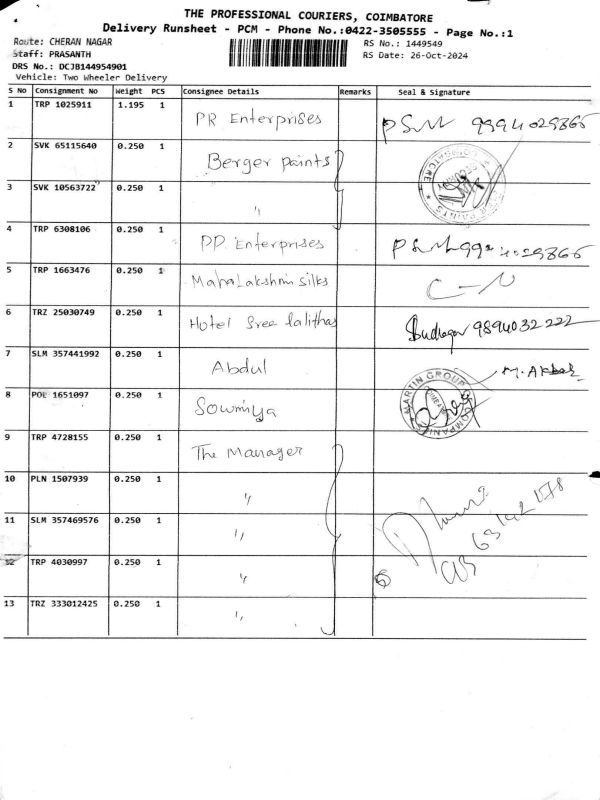 THE PROFESSIONAL COURIERS, COIMBATORE
Delivery Runsheet - PCM - Phone No.:0422-3505555 - Page No.:1
Route: CHERAN NAGAR RS No.: 1449549
Staff: PRASANTH RS Date: 26-Oct-2024
DRS No.: DCJB144954901
Vehicle: Two Wheeler Delivery
S No Consignment No Weight PCS Consignee Details Remarks Seal & Signature
1 TRP 1025911 1.195 1 PR Enterprises 9994029865
2 SVK 65115640 0.250 1 Berger paints
3 SVK 10563722 0.250 1 "
4 TRP 6308106 0.250 1 Enterprises
5 TRP 1663476 0.250 1 MahaLakshmi silks
6 TRZ 25030749 0.250 1 Hotel Sree lalithas 9894032222
7 SLM 357441992 0.250 1 Abdul M. Akbar
8 POL 1651097 0.250 1 Sowmiya MARTIN GROUP
9 TRP 4728155 0.250 1 The Manager
10 PLN 1507939 0.250 1 "
11 SLM 357469576 0.250 1 "
12 TRP 4030997 0.250 1 "
13 TRZ 333012425 0.250 1 "